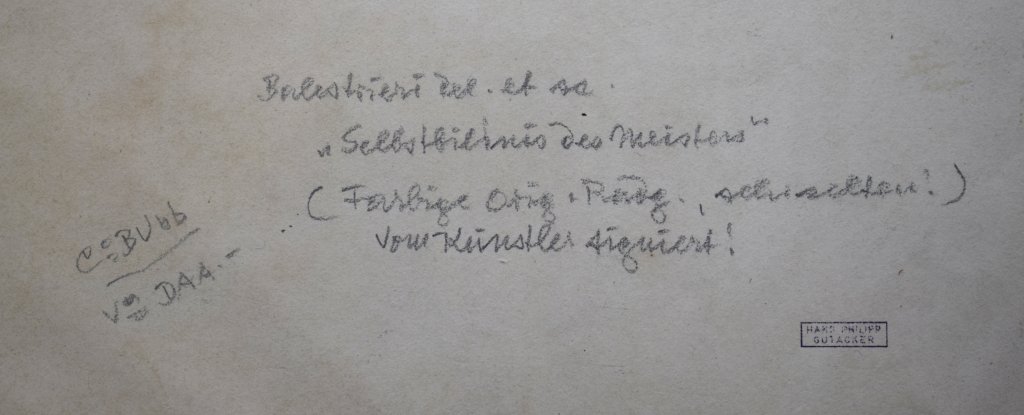 Balestrieri del. et sc.
„Selbstbildnis des Meisters“
(Farbige Orig. Radg., sehr selten!)
Vom Künstler signiert!
BUbb
DAA.-
HANS PHILIPP
GUTACKER